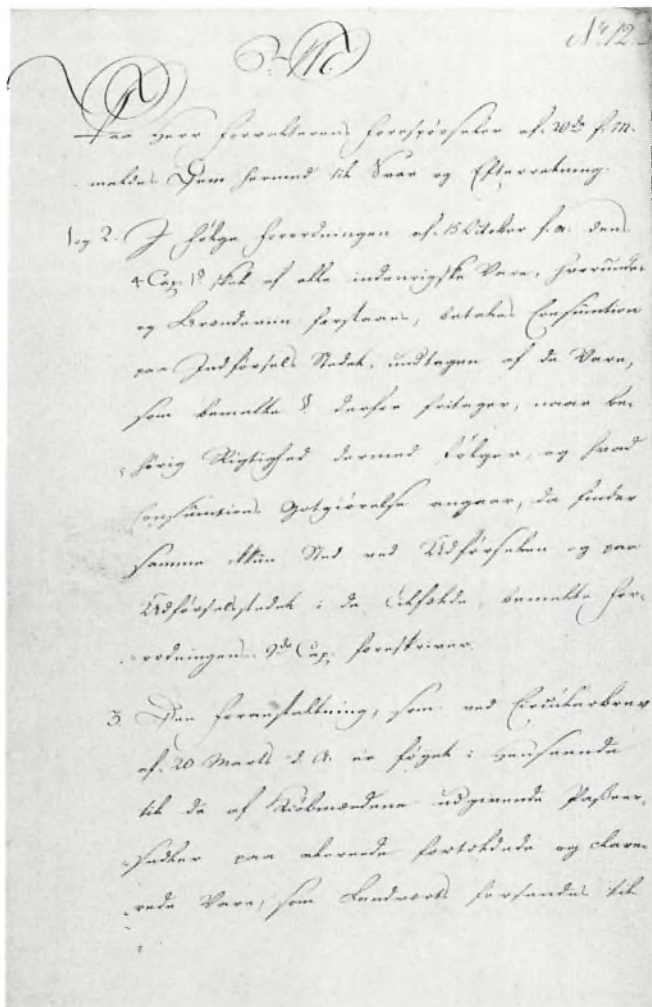 N° 12.
P. M.
Paa Herr Forvalterens Forespörseler af 20de f. M.
meldes Dem hermed til Svar og Efterretning.
1 og 2. I Fölge Forordningen af 15 October f. a. dens
4 Cap. 1 § skal af alle indenrigske Vare, hvorunder
og Brændeviin forstaaes, betales Consumtion
paa Indförsels Stedet, undtagen af de Vare,
som bemeldte § derfor fritager, naar be-
hörig Rigtighed dermed fölger, og hvad
Consumtions Godtgiörelse angaaer, da finder
samme ikkun Sted ved Udförselen og paa
Udförselsstedet i de Tilfælde, bemeldte For-
ordningens 9de Cap. foreskriver.
3. Den Foranstaltning, som ved Circulairbrev
af 20 Marts d. A. er föyet i Henseende
til de af Kiöbmændene udgivende Passeer-
sedler paa allerede fortoldede og clare-
rede Vare, som Landværts forsendes til